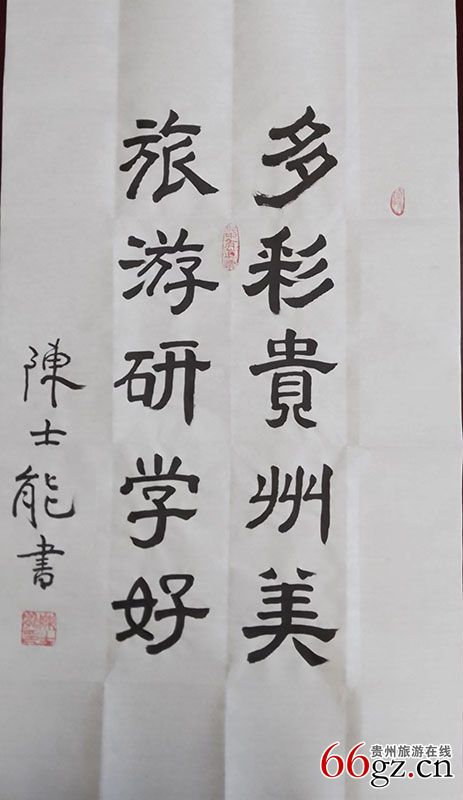 多彩貴州美
旅游研学好
陳士能書
贵州旅游在线
66gz.cn